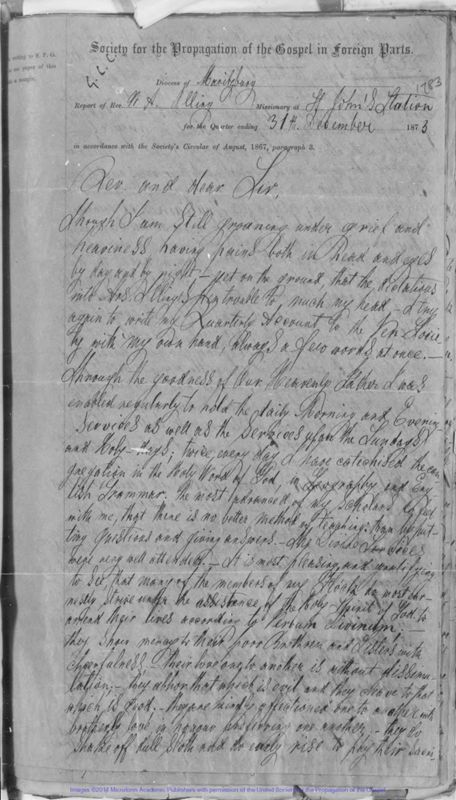 Society for the Propagation of the Gospel in Foreign Parts.
783
Diocese of Maritzburg
Report of Rev. W. A. Illing Missionary at St John's Station
for the Quarter ending 31st December 1873
in accordance with the Society's Circular of August, 1867, paragraph 3.
Rev. and dear Sir,
Though I am still groaning under grief and
heaviness having pains both in head and eyes
by day and by night, – yet on the ground, that the
Mrs Illing's to, much my head, – I try
again to write my Quarterly Account to the Ven. Socie
ty with my own hand, always a few words at once. –
Through the goodness of Our Heavenly Father I was
enabled regularly to hold the daily Morning and Evening
Services as well as the Services upon the Sundays
and Holy-days; twice every day I have catechised the con
gregation in the Holy Word of God, in Geography and Eng
lish Grammar. The most advanced of my Scholars
with me, that there is no better method of teaching than by put-
ting questions and giving answers. – My Divine Services
were very well attended. – It is most pleasing and
to see that many of the members of my flock do most ear-
nestly strive under the assistance of the Holy Spirit of God, to
amend their lives according to Verbum Divinum; –
they shew mercy to their poor Brethren and Sisters with
cheerfulness. Their love one to another is without dissimu-
lation; – they abhor that which is evil and they cleave to that
which is good. They are kindly affectioned one to another with
brotherly love in honour preferring one another; – they do
shake off dull sloth and do early rise to pay their
Images ©2018 Microform Academic Publishers with permission of the United Society for the Propagation of the Gospel